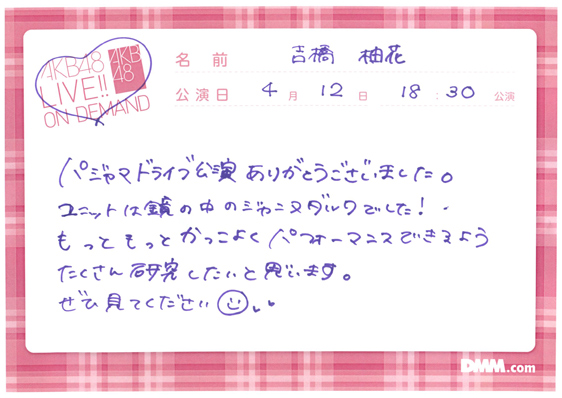 AKB48
LIVE!!
ON DEMAND
AKB
48
名前 吉橋 柚花
公演日 4月12日 18:30公演
パジャマドライブ公演ありがとうございました。
ユニットは鏡の中のジャンヌダルクでした!
もっともっとかっこよくパフォーマンスできるよう
たくさん研究したいと思います。
ぜひ見てください
DMM.com